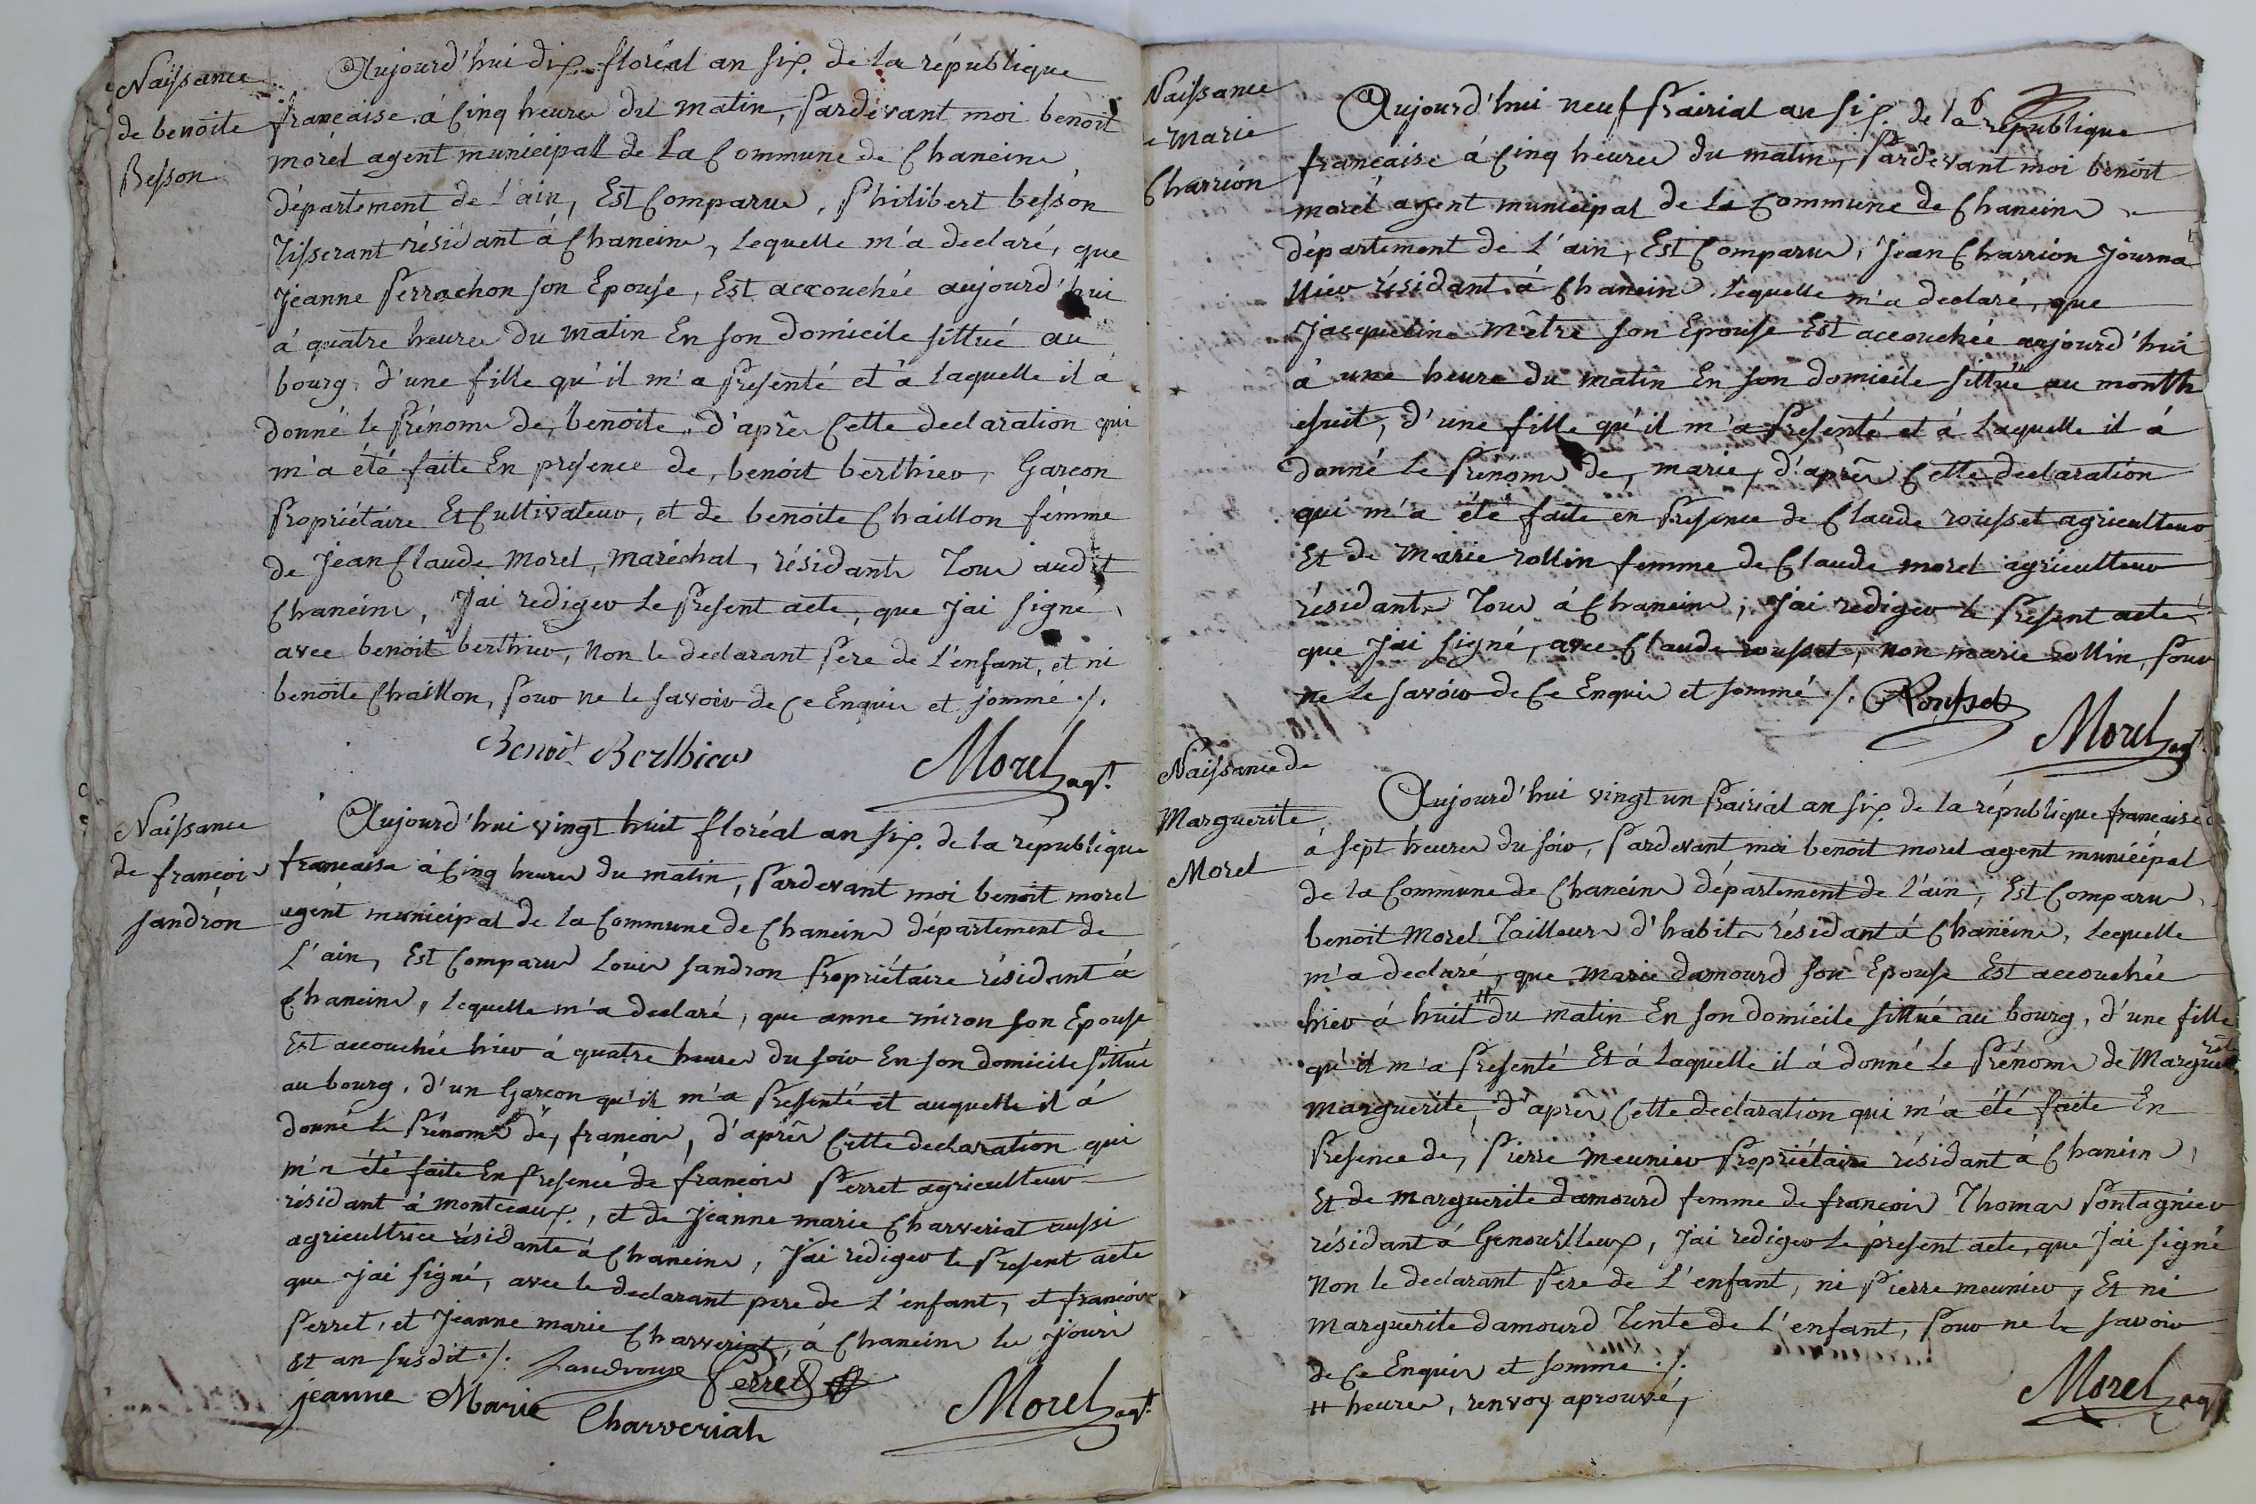 Naissance
de benoite
Besson
Aujourd'hui dix floréal an six de la république
francaise à Cinq heures du matin, Pardevant moi benoit
morel agent municipal de la Commune de Chaneins
département de l'ain, Est Comparus, Philibert besson
Tisserant résidant à Chaneins, lequelle m'a declaré, que
Jeanne Perrachon son Epouse, Est accouchée aujourd'hui
à quatre heures du matin En son domicile sittué au
bourg, d'une fille qu'il m'a Presenté et à laquelle il a
donné le Prénoms de, benoite, d'après Cette declaration qui
m'a été faite En presence de, benoit berthier, Garcon
Propriétaire Et Cultivateur, et de benoite Chaillon fémme
de Jean Claude Morel, maréchal, résidants Tous audit
Chaneins, J'ai rediger le Present acte, que J'ai signé,
avec benoit berthier, Non le declarant Pere de l'enfant, et ni
benoite Chaillon, Pour ne le savoir de Ce Enquis et sommé ./.
Benoit Berthier
Morel agt.
Naissance
de françois
sandron
Aujourd'hui vingt huit floréal an six de la république
francaise à Cinq heures du matin, Pardevant moi benoit morel
agent municipal de la Commune de Chaneins département de
l'ain, Est Comparus Louis sandron Propriétaire résidant à
Chaneins, lequelle m'a declaré, que anne miron son Epouse
Est accouchée hier à quatre heures du soir En son domicile sittué
au bourg, d'un Garcon qu'il m'a Presenté et auquelle il à
donné le Prénoms de, francois, d'après Cette declaration qui
m'a été faite En Presence de francois Perret agriculteur
résidant à montceaux, et de Jeanne marie Charveriat aussi
agricultrice résidante à Chaneins, J'ai rediger le Present acte
que J'ai signé, avec le declarant pere de l'enfant, et francois
Perret, et Jeanne marie Charveriat, à Chaneins les Jours
Et an susdit ./.
Perret
jeanne Marie Charveriat
Morel agt.
Naissance
de Marie
Charrion
6
Aujourd'hui neuf Prairial an six de la république
francaise à Cinq heures du matin, Pardevant moi benoit
morel agent municipal de la Commune de Chaneins
département de l'ain, Est Comparus, Jean Charrion Journa
llier résidant à Chaneins lequelle m'a declaré, que
Jacqueline Mêtre son Epouse Est accouchée aujourd'hui
à une heure du matin En son domicile sittué au month
esuit, d'une fille qu'il m'a Presenté et à laquelle il à
donné le Prénoms de, marie, d'après Cette declaration
qui m'a été faite en Presence de Claude rousset agriculteur
Et de Marie rollin femme de Claude morel agriculteur
résidants Tous à Chaneins, J'ai rediger le Present acte
que J'ai signé, avec Claude rousset, non marie rollin, Pour
ne le savoir de Ce Enquis et sommé ./. Rousset
Morel agt.
Naissance de
Marguerite
Morel
Aujourd'hui vingt un Prairial an six de la république francaise
à sept heures du soir, Pardevant moi benoit morel agent municipal
de la Commune de Chaneins département de l'ain, Est Comparus,
benoit Morel Tailleurs d'habits résidant à Chaneins, lequelle
m'a declaré, que Marie damourd son Epouse Est accouchée
hier à huit # du matin En son domicile sittué au bourg, d'une fille
qu'il m'a Presenté Et à laquelle il à donné le Prénoms de
marguerite, d'après Cette declaration qui m'a été faite En
Presence de, Pierre meunier Propriétaire résidant à Chaneins,
Et de marguerite damourd femme de francois Thomas Pontagnier
résidant à Genouilleux, J'ai rediger le présent acte, que J'ai signé
Non le declarant Pere de l'enfant, ni Pierre meunier, Et ni
marguerite damourd Tente de l'enfant, Pour ne le savoir
de Ce Enquis et sommé ./.
# heures, renvoy aprouvé,
Morel agt.